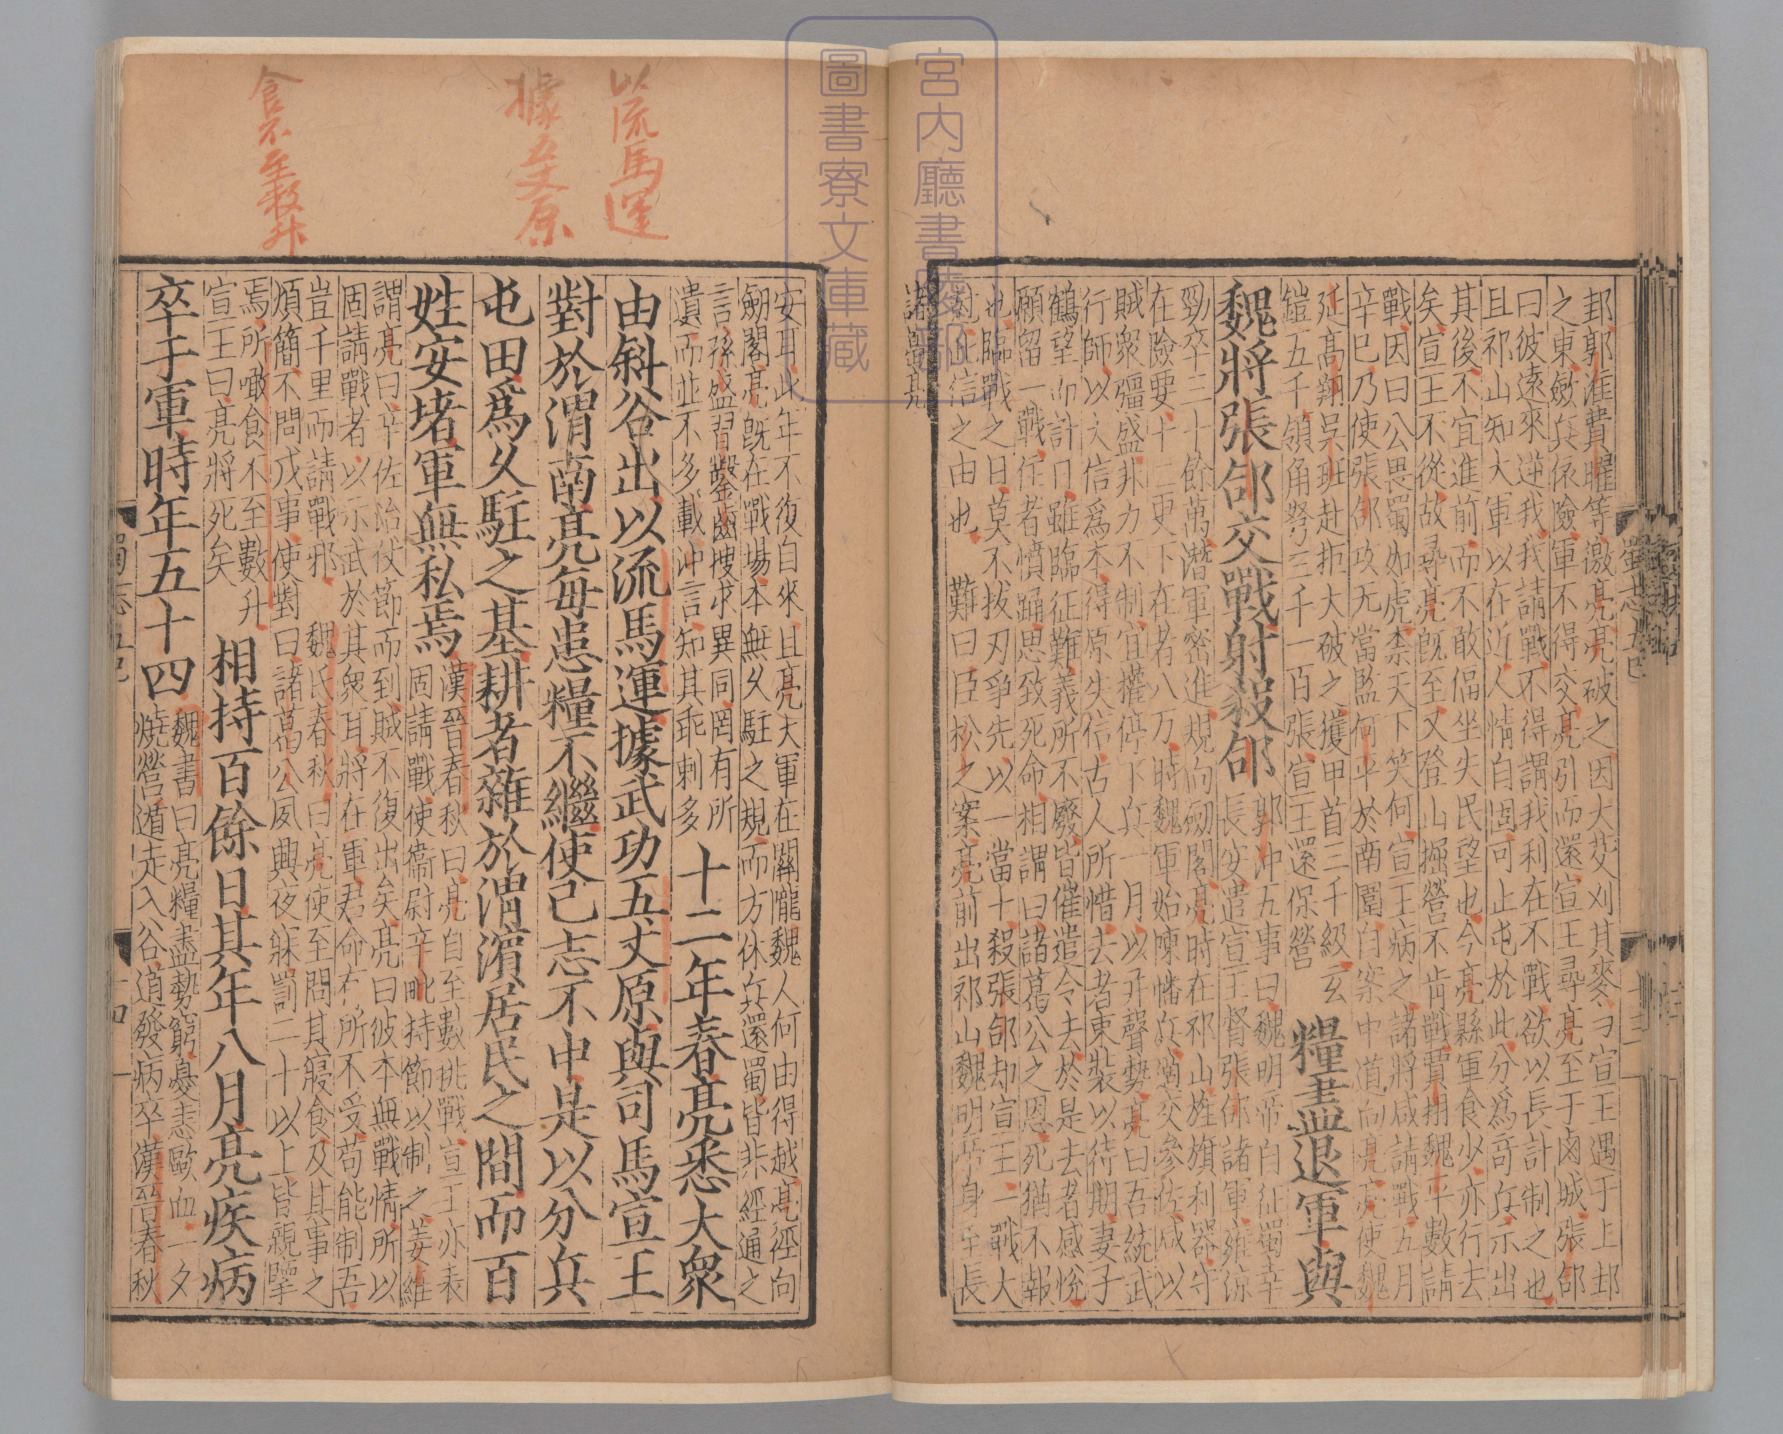 邽郭淮費曜等激亮亮破之因大芟刈其麥与宣王遇于上邽
之東斂兵依險軍不得交亮引而還宣王尋亮至于鹵城張郃
曰彼遠來逆我我請戰不得謂我利在不戰欲以長計制之也
且祁山知大軍以在近人情自固可止屯於此分爲奇兵示出
其後不宜進前而不敢偪坐失民望也今亮縣軍食少亦行去
矣宣王不從故尋亮既至又登山掘營不肯戰賈栩魏平數請
戰因曰公畏蜀如虎柰天下笑何宣王病之諸將咸請戰五月
辛巳乃使張郃攻无當監何平於南圍自案中道向亮亮使魏
延高翔吳班赴拒大破之獲甲首三千級玄
鎧五千領角弩三千一百張宣王還保營
糧盡退軍與
魏將張郃交戰射殺郃
郭沖五事曰魏明帝自征蜀幸
長安遣宣王督張郃諸軍雍涼
勁卒三十餘萬潛軍密進規向劒閣亮時在祁山旌旗利器守
在險要十二更下在者八万時魏軍始陳幡兵適交參佐咸以
賊衆彊盛非力不制宜權停下兵一月以并聲勢亮曰吾統武
行師以大信爲本得原失信古人所惜去者束裝以待期妻子
鶴望而計日雖臨征難義所不廢皆催遣令去於是去者感悅
願留一戰住者憤踊思致死命相謂曰諸葛公之恩死猶不報
也臨戰之日莫不拔刃爭先以一當十殺張郃却宣王一戰大
尅此信之由也 難曰臣松之案亮前出祁山魏明帝身至長
諸葛亮
宮內廳書陵部
圖書寮文庫藏
以流馬運
據五丈原
食不至数升
安耳此年不復自來且亮大軍在關隴魏人何由得越亮徑向
劒閣亮既在戰場本無久駐之規而方休兵還蜀皆非經通之
言孫盛習鑿齒搜求異同罔有所
遺而並不多載沖言知其乖剌多
十二年春亮悉大衆
由斜谷出以流馬運據武功五丈原與司馬宣王
對於渭南亮每患糧不繼使己志不申是以分兵
屯田爲久駐之基耕者雜於渭濱居民之間而百
姓安堵軍無私焉
漢晉春秋曰亮自至數挑戰宣王亦表
固請戰使衞尉辛毗持節以制之姜維
謂亮曰辛佐治仗節而到賊不復出矣亮曰彼本無戰情所以
固請戰者以示武於其衆耳將在軍君命有所不受苟能制吾
豈千里而請戰邪 魏氏春秋曰亮使至問其寢食及其事之
煩簡不問戎事使對曰諸葛公夙興夜寐罰二十以上皆親擥
焉所噉食不至數升
宣王曰亮將死矣
相持百餘日其年八月亮疾病
卒于軍時年五十四
魏書曰亮糧盡勢窮憂恚歐血一夕
燒營遁走入谷道發病卒漢晉春秋